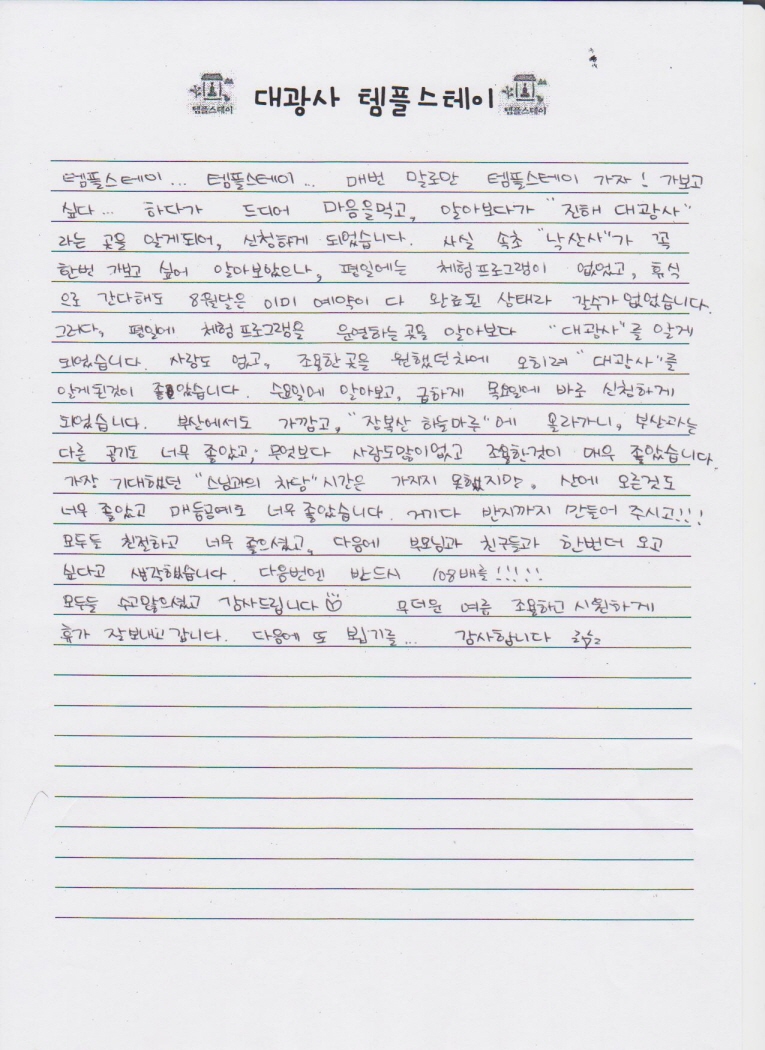 대광사 템플스테이
템플스테이
템플스테이
템플스테이... 템플스테이... 매번 말로만 템플스테이 가자! 가보고
싶다... 하다가 드디어 마음을먹고, 알아보다가 "진해 대광사"
라는 곳을 알게되어, 신청하게 되었습니다. 사실 속초 "낙산사"가 꼭
한번 가보고 싶어 알아보았으나, 평일에는 체험프로그램이 없었고, 휴식
으로 간다해도 8월달은 이미 예약이 다 완료된 상태라 갈수가없었습니다.
그러다, 평일에 체험프로그램을 운영하는곳을 알아보다 "대광사"를 알게
되었습니다. 사람도 없고, 조용한곳을 원했던차에 오히려 "대광사"를
알게된것이 좋았습니다. 수요일에 알아보고, 급하게 목요일에 바로 신청하게
되었습니다. 부산에서도 가깝고, "장복산 하늘마루"에 올라가니, 부산과는
다른 공기도 너무 좋았고, 무엇보다 사람도많이없고 조용한것이 매우 좋았습니다.
가장 기대했던 "스님과의 차담"시간은 가지지 못했지만, 산에 오른것도
너무 좋았고 매듭공예도 너무좋았습니다. 거기다 반지까지 만들어 주시고!!!
모두들 친절하고 너무 좋으셨고, 다음에 부모님과 친구들과 한번더 오고
싶다고 생각했습니다. 다음번엔 반드시 108배를!!!!!
모두들 수고많으셨고 감사드립니다 무더운 여름 조용하고 시원하게
휴가 잘보내고갑니다. 다음에 또 뵙기를... 감사합니다